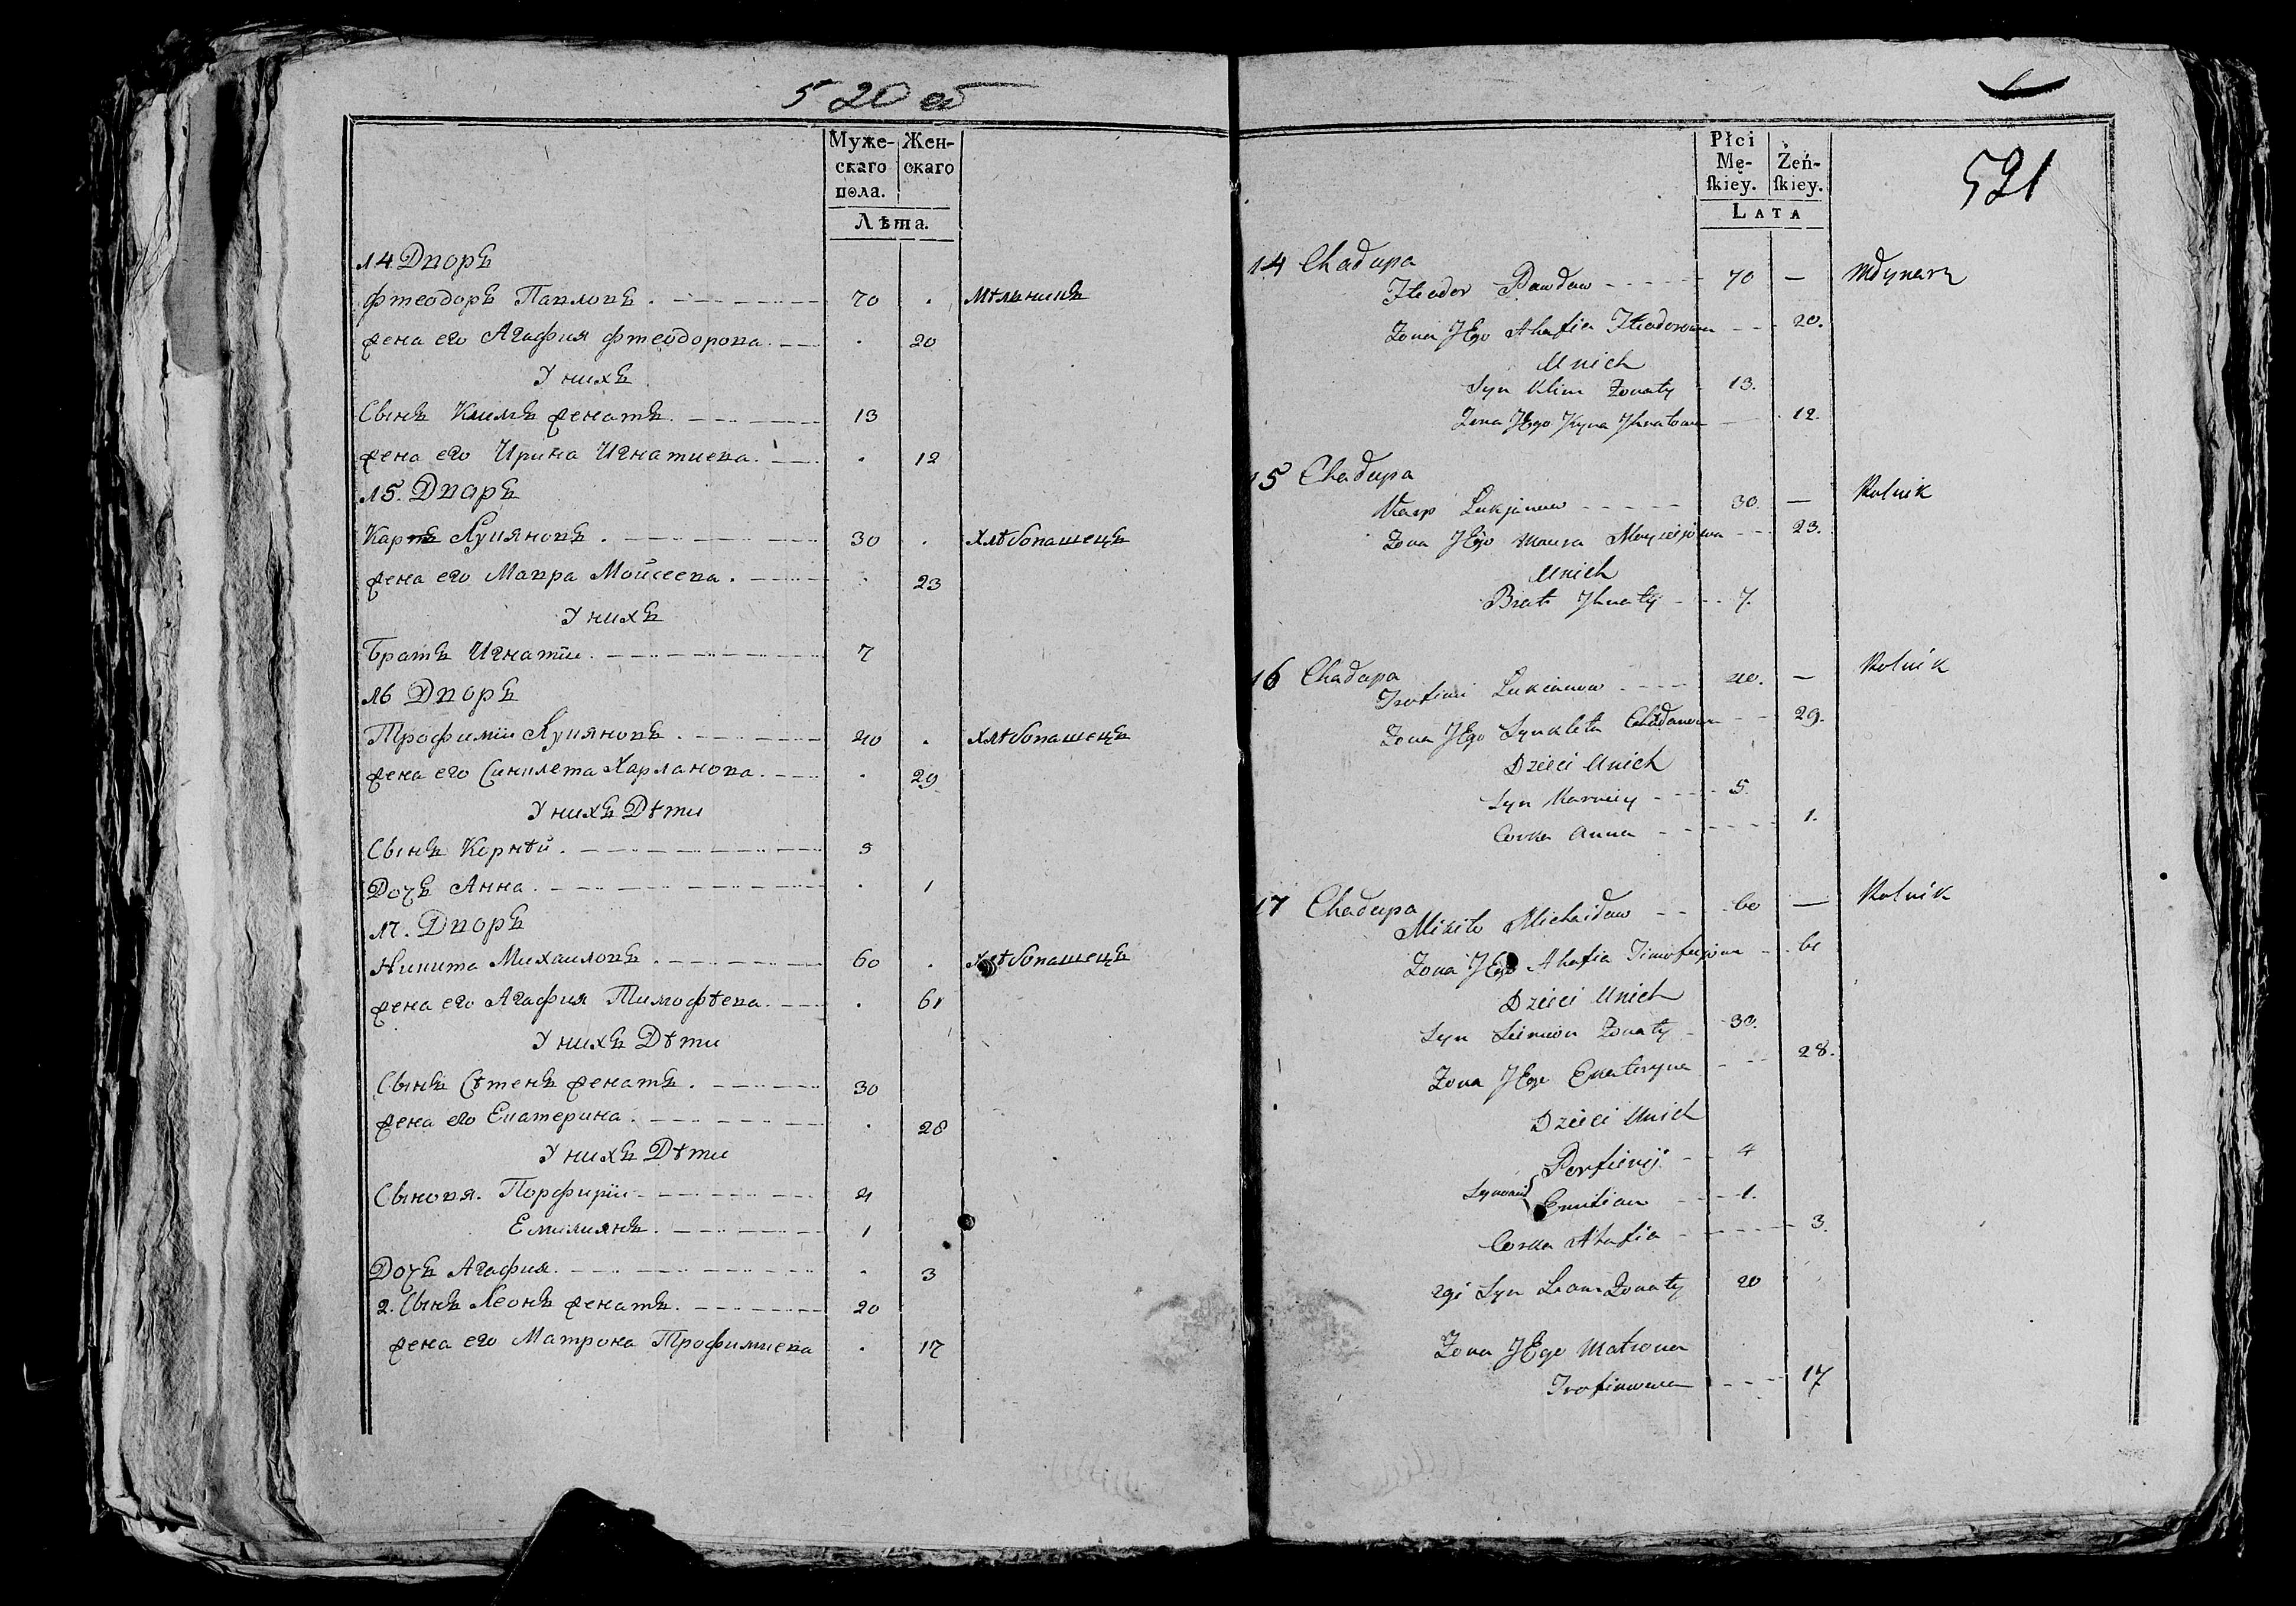 520 об
Муже-
скаго
пола.
Жен-
скаго
Лѣта.
14 Дворъ
Фтеодоръ Павловъ . 70 . Мѣльникъ
жена его Агафия Фтеодорова . . 20
У нихъ
Сынъ Климъ женатъ . 13
жена его Ирина Игнатиева . . 12
15. Дворъ
Карпъ Лукяновъ . 30 . Хлѣбопашецъ
жена его Мавра Мойсеева . . 23
У нихъ
Братъ Игнатіи . 7
16 Дворъ
Трофиміи Лукяновъ . 40 . Хлѣбопашецъ
жена его Синклета Харланова . . 29
У нихъ Дѣти
Сынъ Корнѣй . 5
Дочъ Анна . . 1
17. Дворъ
Никита Михаиловъ . 60 . Хлѣбопашецъ
жена его Агафия Тимофѣева . . 61
У нихъ Дѣти
Сынъ Сѣменъ женатъ . 30
жена его Екатерина . . 28
У нихъ Дѣти
Сыновя. Порфиріи 4
Емилиянъ . 1
Дочъ Агафия . . 3
2. Сынъ Леонъ женатъ . 20
жена его Матрона Трофимиева . 17
521
Płci
Mę-
ſkiey.
Żeń-
ſkiey.
LATA
14 Chałupa
Fteodor Pawłow 70 — Młynarz
Żona JEgo Ahafia Fteodorowa 20.
Unich
Syn Klim Żonaty 13.
Żona JEgo Jryna Jhnatowa 12.
15 Chałupa
Karp Lukjanow 30. — Rolnik
Żona JEgo Maura Moysiejowa 23.
Unich
Brat Jhnatÿ 7.
16 Chałupa
Trofimi Lukianow 40. — Rolnik
Żona JEgo Synkleta 29.
Dzieci Unich
Syn Karniey 5.
Corka Anna 1.
17 Chałupa
Mikito Michaiłow 60 — Rolnik
Żona JEgo Ahafia Timofiejowa 61
Dzieci Unich
Syn Siemion Żonaty 30.
Żona JEgo Ekateryna 28.
Dzieci Unich
Porfieryi 4
Synowie Emilian 1.
Corka Ahafia 3.
2gi Syn Leon Żonaty 20
Żona JEgo Matrona
Trofimowa 17